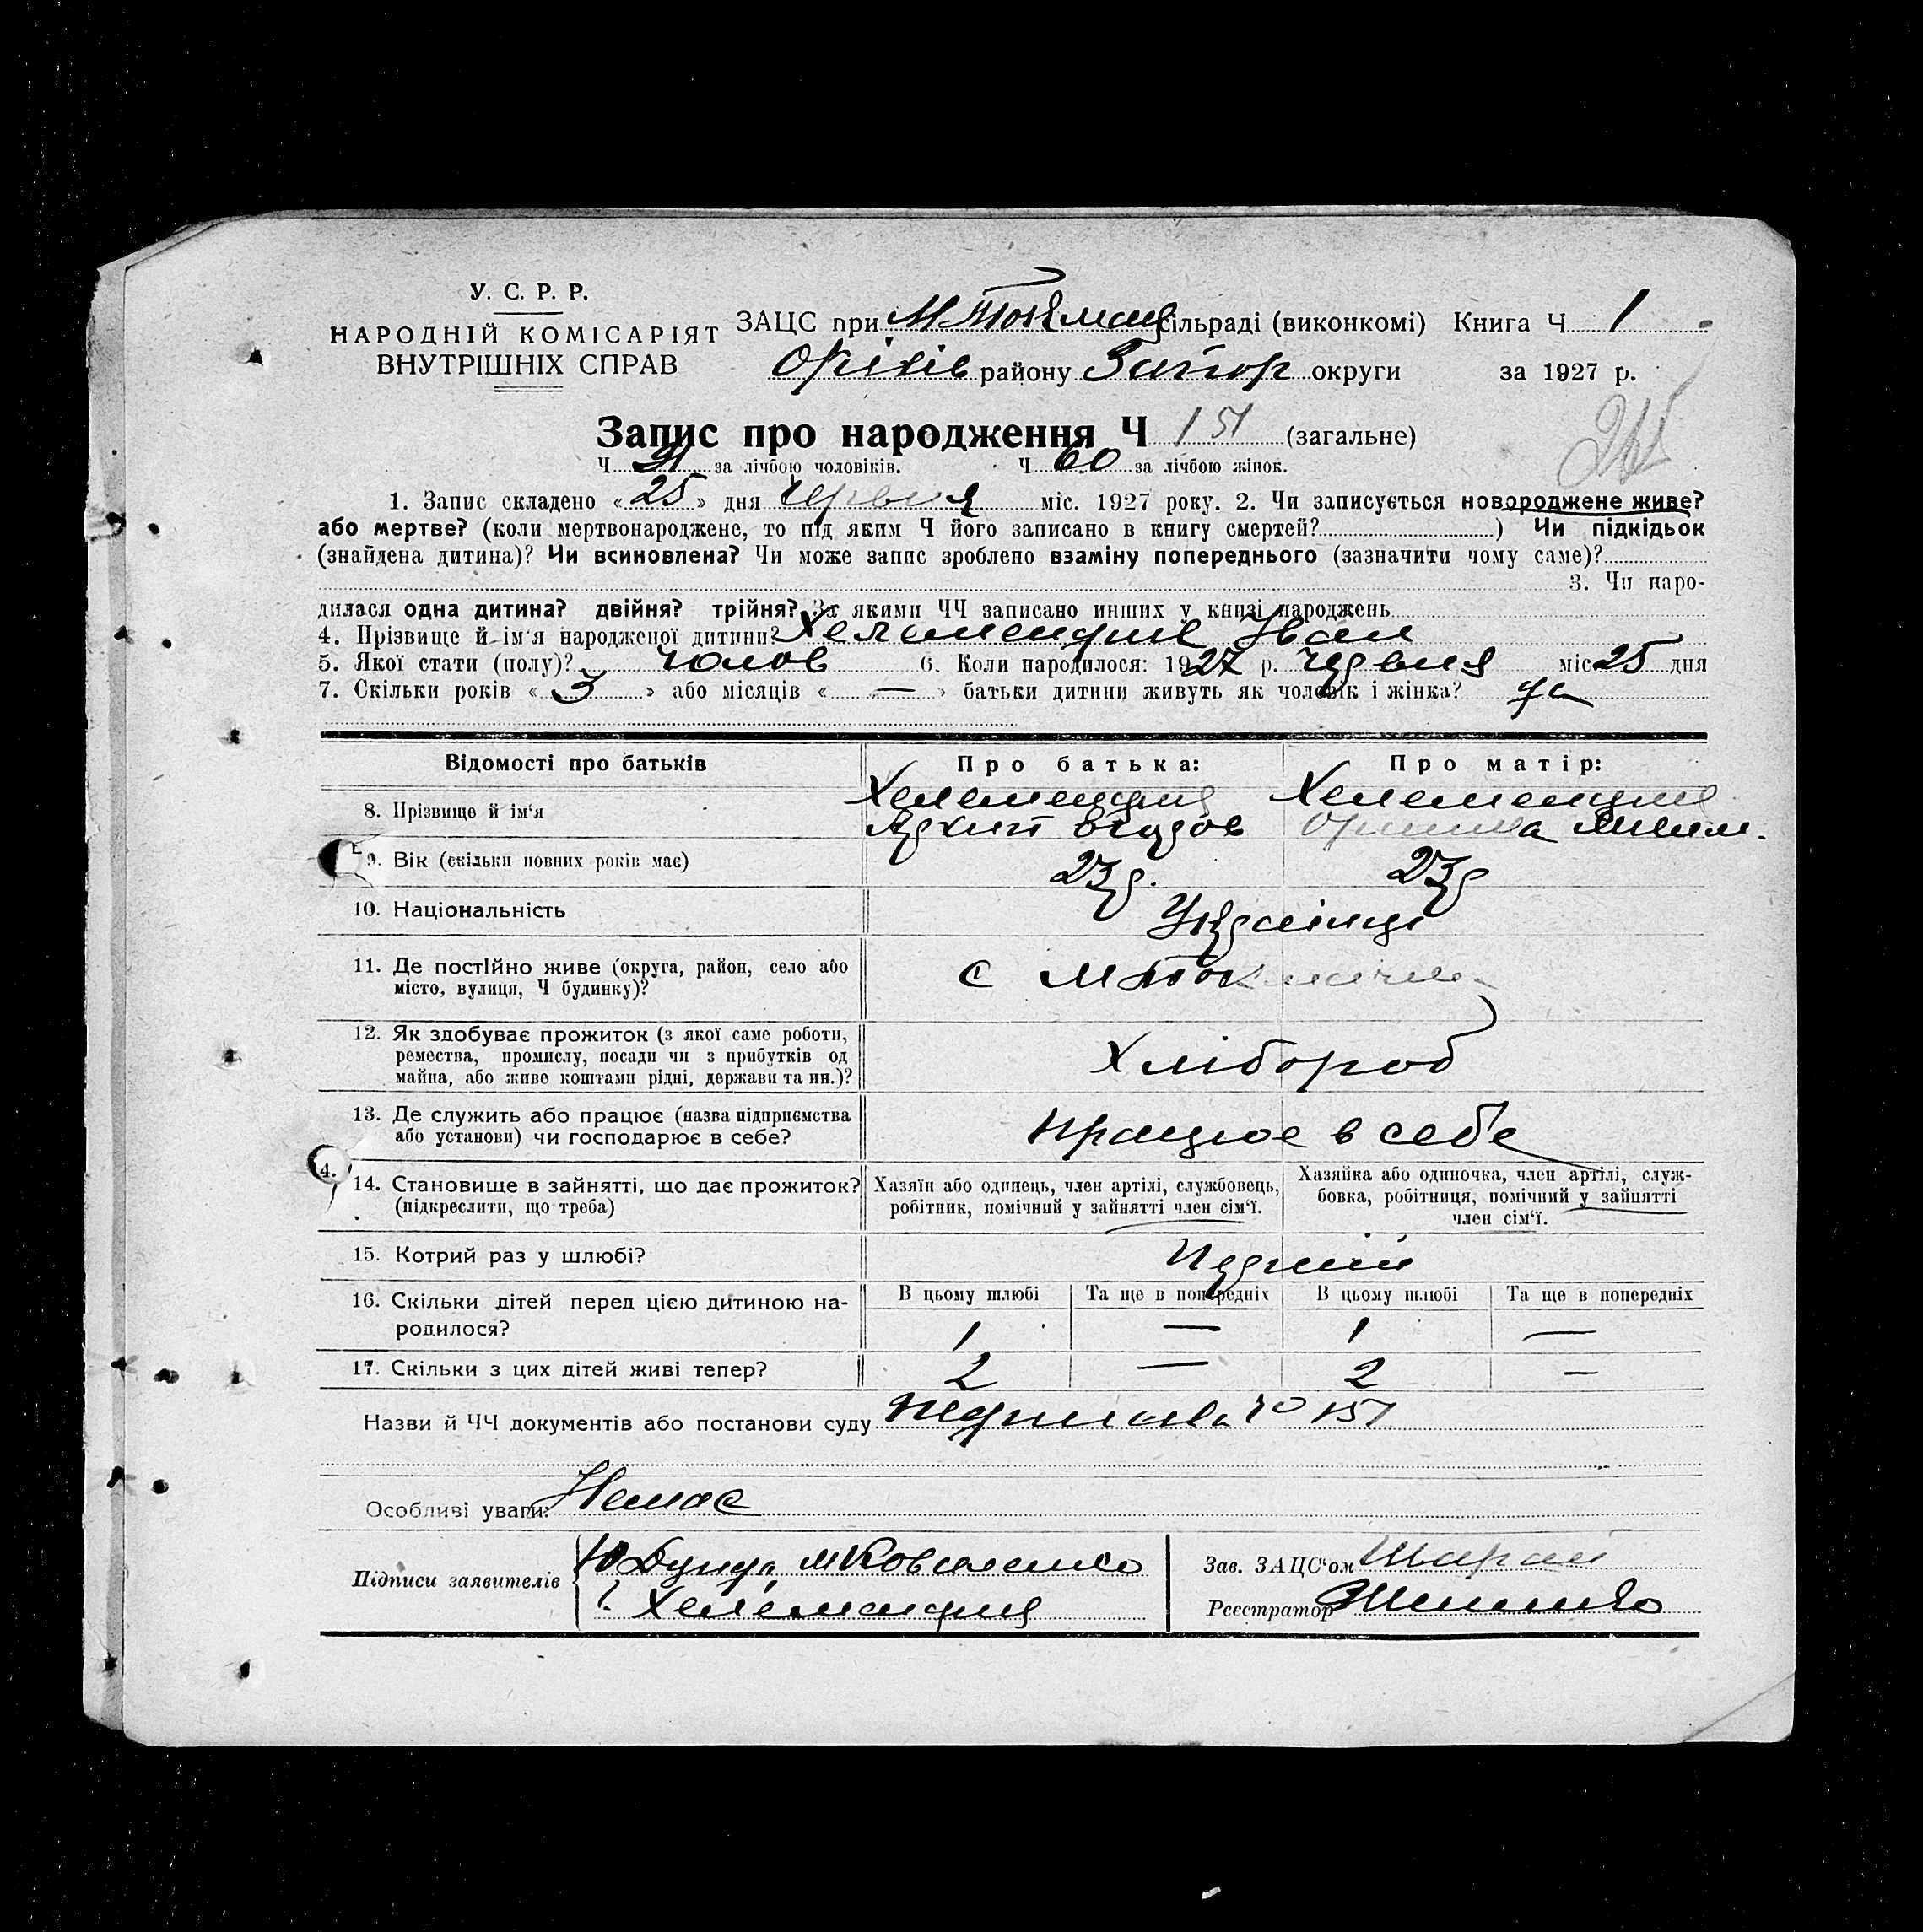 У. С. Р. Р.
НАРОДНІЙ КОМІСАРІЯТ
ВНУТРІШНІХ СПРАВ
ЗАЦС при М Токмац сільраді (виконкомі) Книга Ч 1
Оріхів району Запор округи за 1927 р.
Запис про народження Ч 151 (загальне)
Ч 91 за лічбою чоловіків. Ч 60 за лічбою жінок.
1. Запис складено «25» дня Червня міс. 1927 року. 2. Чи записується новороджене живе?
або мертве? (коли мертвонароджене, то під яким Ч його записано в книгу смертей? ) Чи підкідьок
(знайдена дитина)? Чи всиновлена? Чи може запис зроблено взаміну попереднього (зазначити чому саме)?
3. Чи наро-
дилася одна дитина? двійня? трійня? За якими ЧЧ записано инших у книзі народжень
4. Прізвище й ім'я народженої дитини? Іван
5. Якої стати (полу)? чолов 6. Коли народилося: 1927 р. Червня міс 25 дня
7. Скільки років «3» або місяців «—» батьки дитини живуть як чоловік і жінка? да
Відомості про батьків Про батька: Про матір:
8. Прізвище й ім'я
9. Вік (скільки повних років має) 23 р. 23 р
10. Національність Українці
11. Де постійно живе (округа, район, село або
місто, вулиця, Ч будинку)? с М Токмачка
12. Як здобуває прожиток (з якої саме роботи,
ремества, промислу, посади чи з прибутків од
майна, або живе коштами рідні, держави та ин.)? Хлібороб
13. Де служить або працює (назва підприємства
або установи) чи господарює в себе? працює в себе
14. Становище в зайнятті, що дає прожиток?
(підкреслити, що треба)
Хазяїн або одинець, член артілі, службовець,
робітник, помічний у зайнятті член сім'ї.
Хазяйка або одиночка, член артілі, служ-
бовка, робітниця, помічний у зайнятті
член сім'ї.
15. Котрий раз у шлюбі? Перший
16. Скільки дітей перед цією дитиною на-
родилося?
В цьому шлюбі Та ще в попередніх В цьому шлюбі Та ще в попередніх
1 — 1 —
17. Скільки з цих дітей живі тепер? 2 — 2 —
Назви й ЧЧ документів або постанови суду 151
Особливі уваги: Немає
Підписи заявителів М Коваленко
Зав. ЗАЦС'ом
Реєстратор